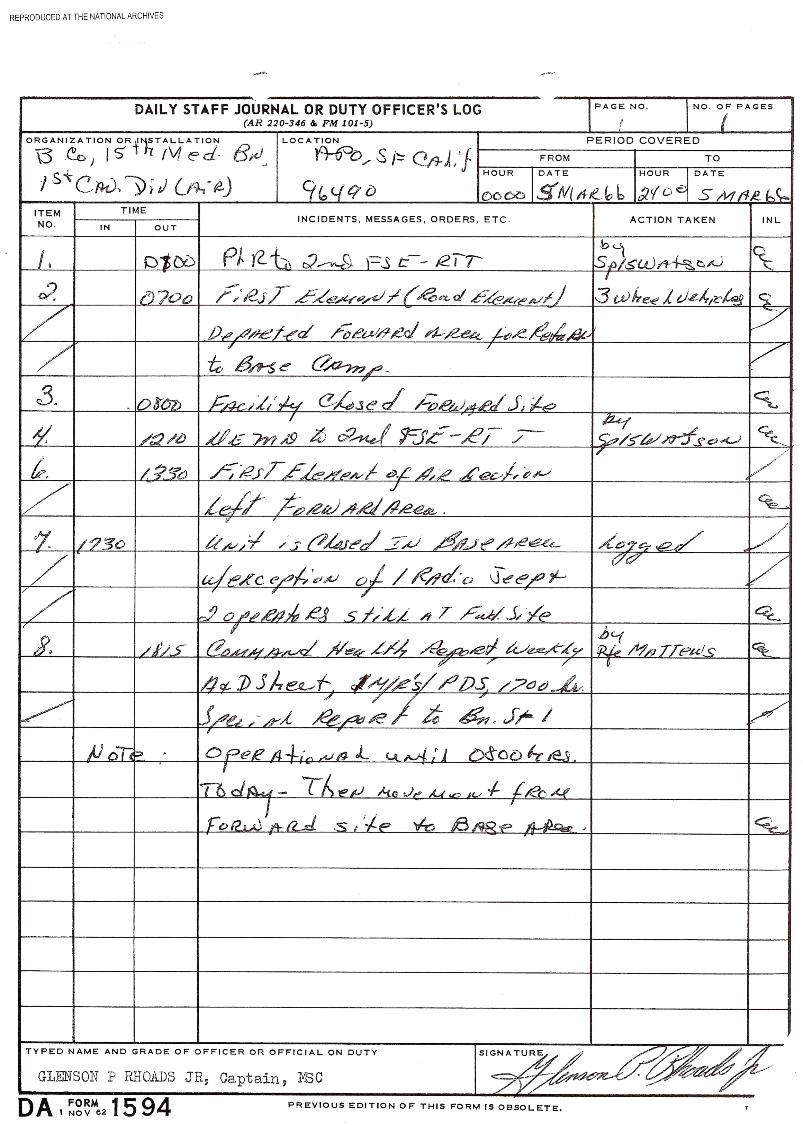 REPRODUCED AT THE NATIONAL ARCHIVES
DAILY STAFF JOURNAL OR DUTY OFFICER'S LOG
(AR 220-346 & FM 101-5)
PAGE NO.
1
NO. OF PAGES
1
ORGANIZATION OR INSTALLATION
B Co, 15th Med. Bn,
1st Cav. Div (Air)
LOCATION
APO, SF Calif
96490
PERIOD COVERED
FROM
TO
HOUR
DATE
HOUR
DATE
0000
5 MAR 66
2400
5 MAR 66
ITEM NO.
TIME
IN
OUT
INCIDENTS, MESSAGES, ORDERS, ETC.
ACTION TAKEN
INL
1. PLR to 2nd FSE-RTT by Sp/5 Watson
2. 0700 First Element (Road Element) 3 wheel vehicles
Departed Forward Area for Return
to Base Camp.
3. 0800 Facility Closed Forward Site
4. 1210 to 2nd FSE-RTT by Sp/5 Watson
6. 1330 First Element of Air Section
Left Forward Area.
7. 1730 Unit is Closed In Base Area Logged
w/exception of 1 Radio Jeep +
2 operators still AT Fwd. Site
8. 1815 Command Health Report, Weekly by Pfc Mattews
A&D Sheet, PDS, 1700 hr.
Special Report to Bn. S-1
Note: Operational until 0800 hrs.
Today- Then movement from
Forward site to Base Area.
TYPED NAME AND GRADE OF OFFICER OR OFFICIAL ON DUTY
GLENSON P RHOADS JR, Captain, MSC
SIGNATURE
Glenson P. Rhoads Jr
DA FORM 1 NOV 62 1594
PREVIOUS EDITION OF THIS FORM IS OBSOLETE.